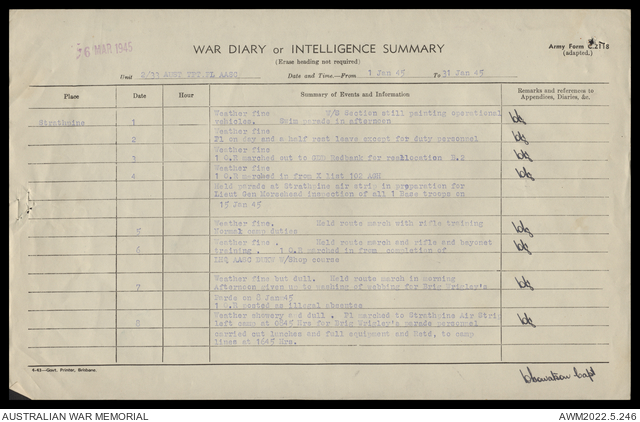 6 MAR 1945
WAR DIARY or INTELLIGENCE SUMMARY
(Erase heading not required)
Army Form C.2118
(adapted.)
Unit 2/33 AASC
Date and Time.—From 1 Jan 45 To 31 Jan 45
Place Date Hour Summary of Events and Information Remarks and references to
Appendices, Diaries, &c.
Strathpine 1 Weather fine V/S Section still painting operational
vehicles. Swim parade in afternoon
Weather fine
2 Pl on day and a half rest leave except for duty personnel
Weather fine
3 1 O.R marched out to Redbank for reallocation
Weather fine
4 1 O.R marched in from X list 102 AGH
Held parade at Strathpine air strip in preparation for
Lieut Gen Morsehead inspection of all 1 Base troops on
15 Jan 45
5 Weather fine. Held route march with rifle training
Normal camp duties
6 Weather fine . Held route march and rifle and bayonet
training . 1 O.R marched in from completion of
AASC W/Shop course
Weather fine but dull. Held route march in morning
7 Afternoon given up to washing of webbing for Brig Wrigley's
Parade on 8 Jan 45
1 O.R posted as illegal absentee
Weather showery and dull . Pl marched to Strathpine Air Strip
8 left camp at 0845 Hrs for Brig Wrigley's parade personnel
carried cut lunches and full equipment and Retd, to camp
lines at 1645 Hrs.
4-43—Govt. Printer, Brisbane.
Capt
AUSTRALIAN WAR MEMORIAL
AWM2022.5.246